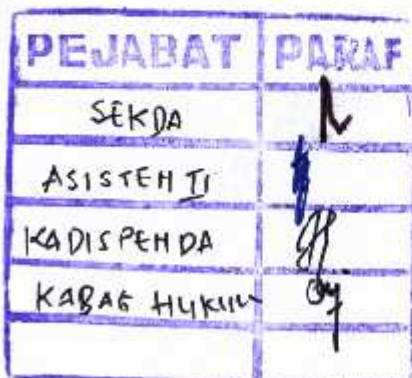 PEJABAT PARAF
SEKDA
ASISTEN II
KADISPENDA
KABAG HUKUM